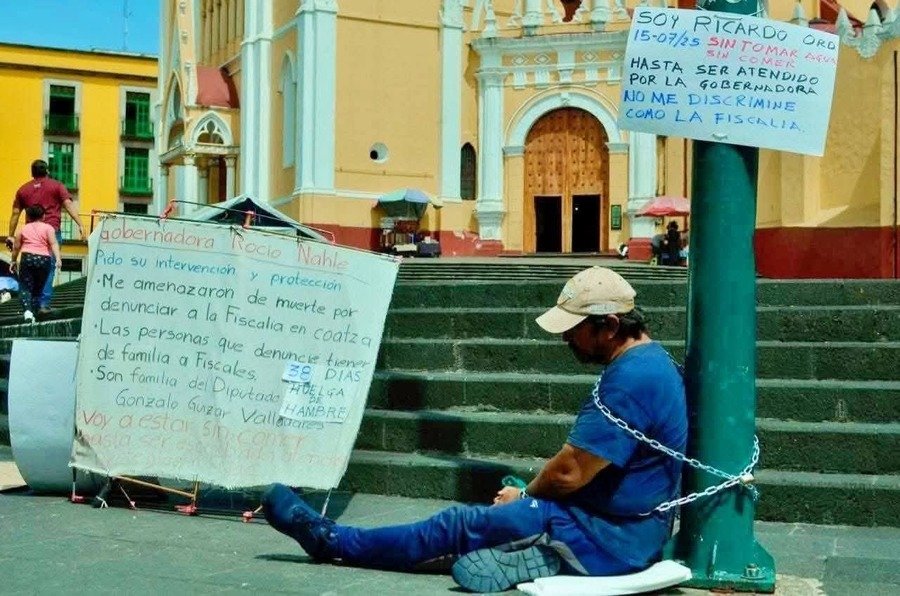 SOY RICARDO ORD
15-07/25 SIN TOMAR AGUA
SIN COMER
HASTA SER ATENDIDO
POR LA GOBERNADORA
NO ME DISCRIMINE
COMO LA FISCALIA.
Gobernadora Rocio Nahle
Pido su intervención y protección
• Me amenazaron de muerte por
denunciar a la Fiscalia en coatza
• Las personas que denuncie tienen
de familia a Fiscales.
• Son familia del Diputado
Gonzalo Guizar Valladares
38 DIAS
HUELGA
DE
HAMBRE
Voy a estar sin comer
hasta ser